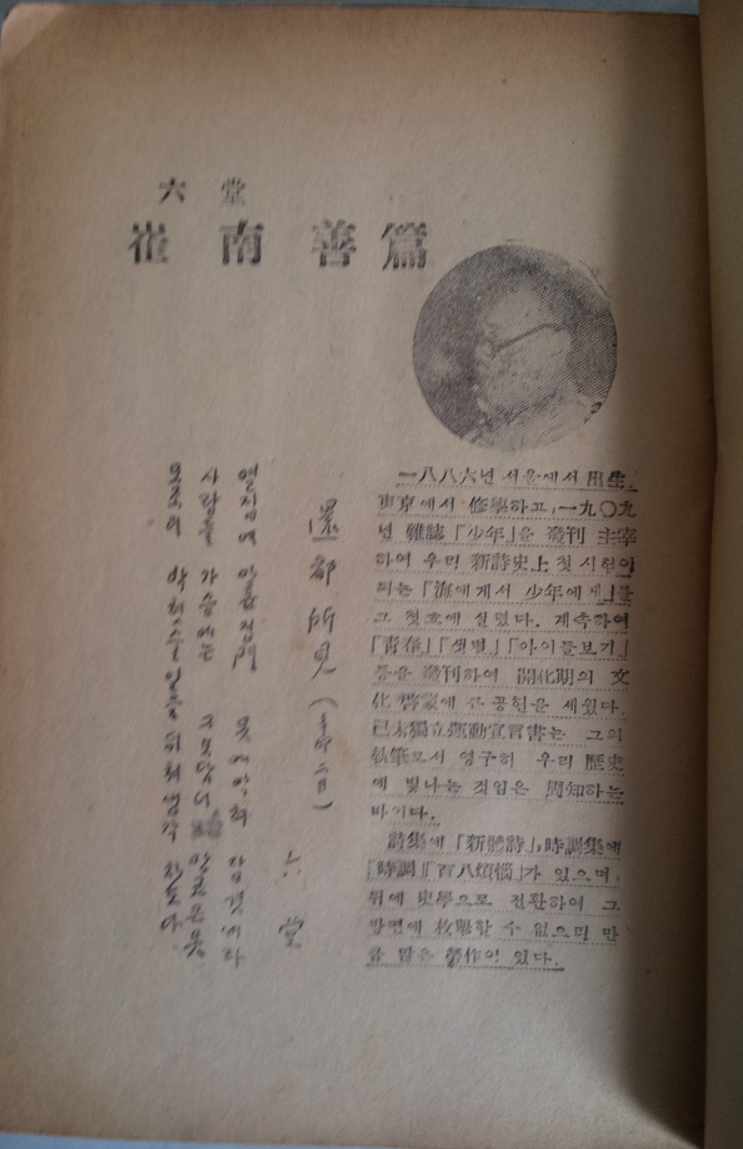 六堂
崔南善篇
一八八六년 서울에서 出生.
東京에서 修學하고, 一九〇九
년 雜誌「少年」을 發刊 主宰
하여 우리 新詩史上 첫 시험이
되는「海에게서 少年에게」를
그 첫호에 실렸다. 계속하여
「靑春」「샛별」「아이들보기」
等을 發刊하여 開化期의 文
化 啓蒙에 큰 공헌을 세웠다.
己未獨立運動宣言書는 그의
執筆로서 영구히 우리 歷史
에 빛나는 것임은 周知하는
바이다.
詩集에「新體詩」, 時調集에
「時調」「百八煩惱」가 있으며,
뒤에 史學으로 전환하여 그
방면에 枚擧할 수 없으며 만
큼 많은 勞作이 있다.
還都所見
六堂
사람들 가슴에는